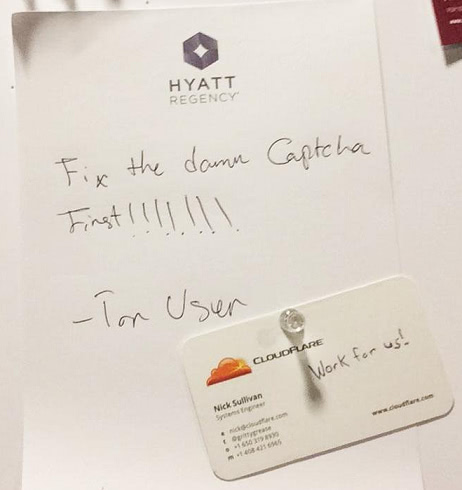 HYATT
REGENCY
Fix the damn Captcha
First!!!!!!!
-Tor User
CLOUDFLARE
Work for us!
Nick Sullivan
Systems Engineer
e nick@cloudflare.com
t @grittygrease
www.cloudflare.com